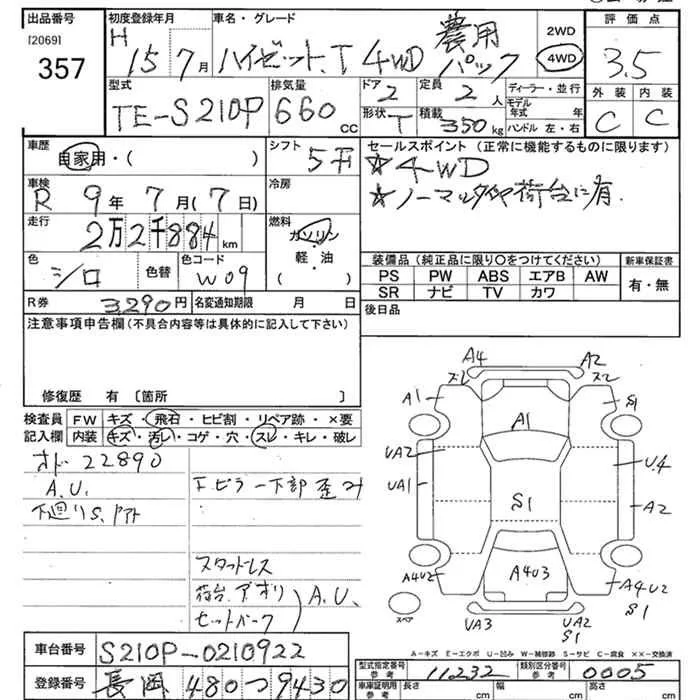 出品番号
[2069]
357
初度登録年月
H 15 7月
車名・グレード
ハイゼット.T 4WD 農用パック
2WD
4WD
評価点
3.5
外装 内装
C C
型式
TE-S210P
排気量
660 cc
ドア
2
定員
2 人
形状
T
積載
350 kg
ディーラー・並行
モデル年式 年式
ハンドル 左・右
車歴
自家用・( )
シフト
5F
セールスポイント (正常に機能するものに限ります)
☆4WD
☆ノーマルタイヤ荷台に有.
車検
R 9年 7月(7日)
冷房
走行
2万2千884km
燃料
ガソリン
軽・油
( )
色
シロ
色替
色コード
W09
装備品 (純正品に限り○をつけてください)
新車保証書
PS PW ABS エアB AW
SR ナビ TV カワ
有・無
R券 3290円
名変通知期限 月 日
後日品
注意事項申告欄 (不具合内容等は具体的に記入して下さい)
修復歴 有 [箇所 ]
検査員記入欄
FW キズ・飛石・ヒビ割・リペア跡・×要
内装 キズ・汚レ・コゲ・穴・スレ・キレ・破レ
オド 22890
A.U.
下廻りS.
下ピラー下部歪み
スタッドレス
荷台.アオリ
セットバーク
A.U.
A4 A2
ズレ ズレ
A1 S1
A1
UA2 U.4
UA1 S1 A2
A4U2 A4U3 A4U2
S1
スペア
UA3 UA2
S1
A-キズ E-エクボ U-凹み W-補修跡 S-サビ C-腐食 ××-交換済
車台番号 S210P-0210922
登録番号 長岡 480つ9430
型式指定番号 参考 11232
類別区分番号 参考 0005
車庫証明用 参考
長さ cm
幅 cm
高さ cm